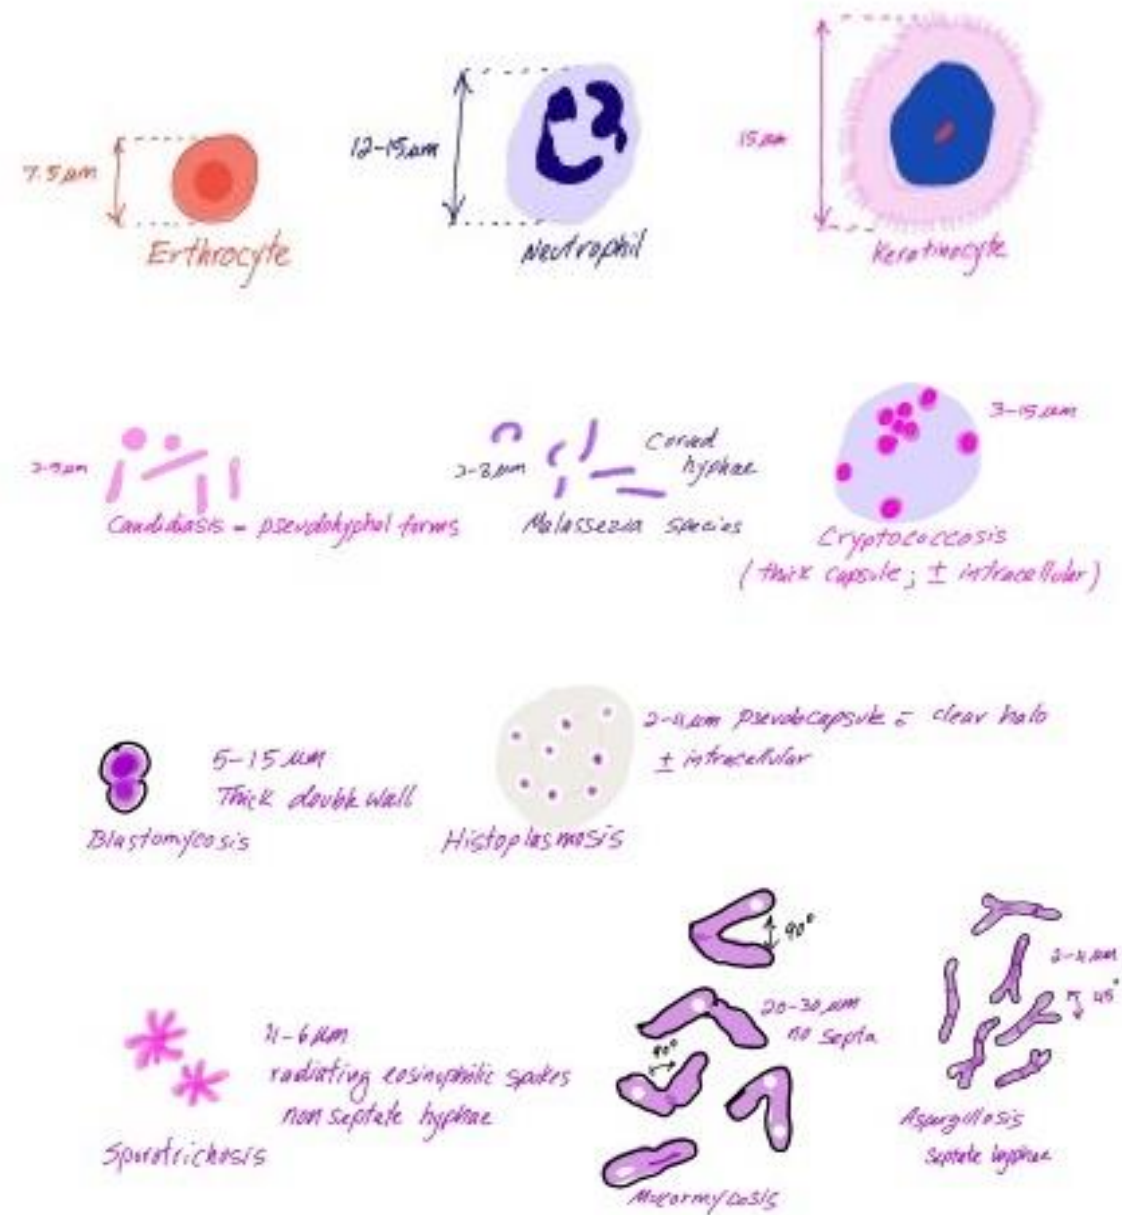 7.5 µm
Erthrocyte
12-15µm
Neutrophil
15µm
Keratinocyte
2-5µm
Candidiasis - pseudohyphal forms
2-8µm
Curved
hyphae
Malassezia species
3-15 µm
Cryptococcosis
(thick capsule; ± intracellular)
5-15 µm
Thick double wall
Blastomycosis
2-4µm pseudocapsule = clear halo
± intracellular
Histoplasmosis
4-6µm
radiating eosinophilic spokes
non septate hyphae
Sporotrichosis
90°
20-30µm
no septa
90°
Mucormycosis
2-4µm
45°
Aspergillosis
Septate hyphae